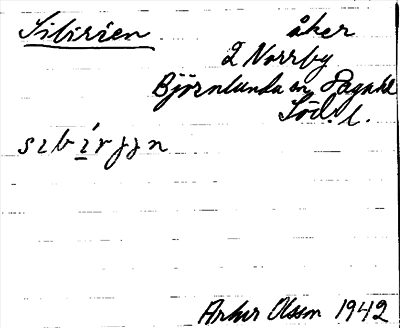 Sibirien
åker
2 Norrby
Björnlunda sn Daga hd
Södl.
sɩbɩ́rjjn
Arhur Olsson 1942